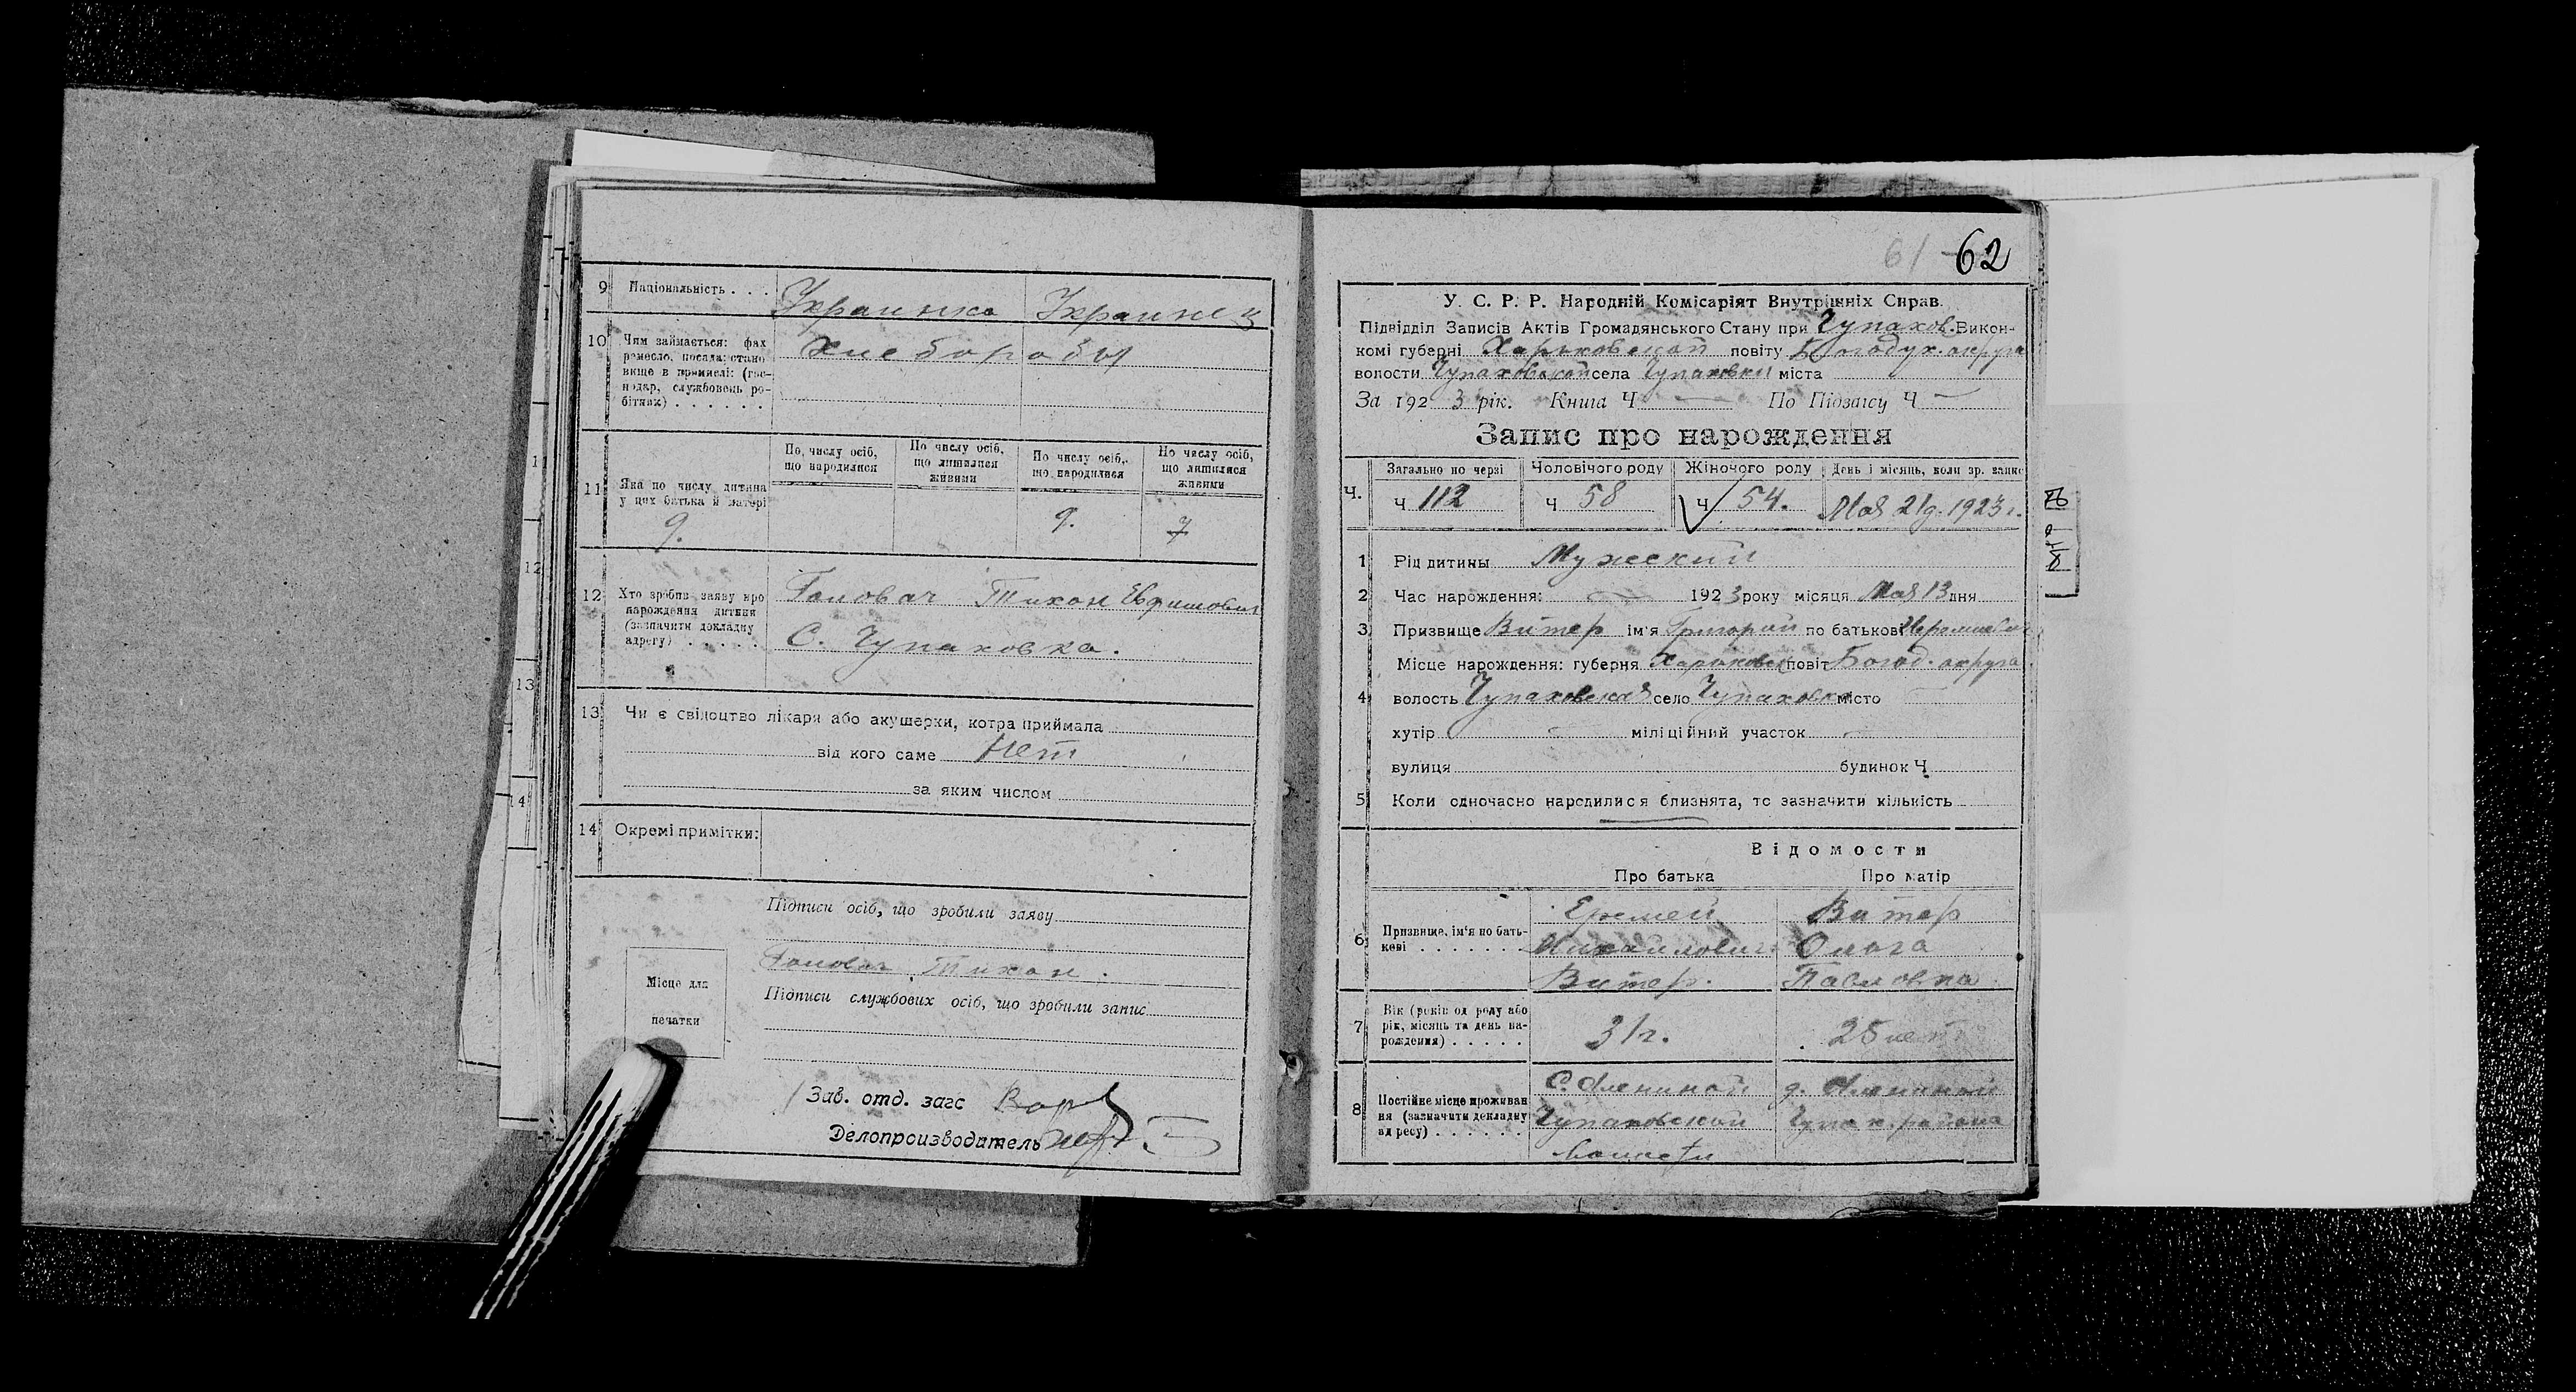 9 Національність . . . Украинка Украинец
10 Чим займається: фах
ремесло, посада: стано
вище в промислі: (гос-
подар, службовець ро-
бітник) . . . . . .
Хлеборобы
11 Яка по числу дитина
у цих батька й матері
9.
По числу осіб,
що народилися
По числу осіб,
що лишилися
живими
По числу осіб,
що народилися
9.
По числу осіб,
що лишилися
живими
7
12 Хто зробив заяву про
нарождення дитини
(зазначити докладну
адресу) . . . . .
Головач Тихон Евфимович
С. Чупаховка.
13 Чи є свідоцтво лікаря або акушерки, котра приймала
від кого саме Нет
за яким числом
14 Окремі примітки:
Підписи осіб, що зробили заяву
Головач Тихон.
Підписи службових осіб, що зробили запис
Місце для
печатки
Зав. отд. загс
Делопроизводитель
61 62
У. С. Р. Р. Народній Комісаріят Внутрішніх Справ.
Підвідділ Записів Актів Громадянського Стану при Чупахов. Викон-
комі губерні Харьковской повіту Богодух. округа
волости Чупаховской села Чупаховки міста
За 1923 рік. Книга Ч По Підзагсу Ч
Запис про нарождення
Загально по черзі Чоловічого роду Жіночого роду День і місяць, коли зр. запис
Ч. Ч 112 Ч 58 Ч 54. Мая 21д. 1923 г.
1 Рід дитини Мужеский
2 Час нарождення: 1923 року місяця Мая 13 дня
3 Призвище Витер ім'я Григорий по батькові Иеремиевич
Місце нарождення: губерня Харьковск. повіт Богод. округа
4 волость Чупаховская село Чупаховка місто
хутір міліційний участок
вулиця будинок Ч
5 Коли одночасно народилися близнята, то зазначити кількість
Відомости
Про батька Про матір
6 Призвище, ім'я по бать-
кові . . . . . . .
Еремей
Михайлович
Витер.
Витер
Ольга
Павловна
7 Вік (років од роду або
рік, місяць та день на-
рождення) . . . . .
31 г.
25 лет
8 Постійне місце проживан
ня (зазначити докладну
адресу) . . . . . .
С. Олениной
Чупаховской
волости
д. Олениной
Чупах. района